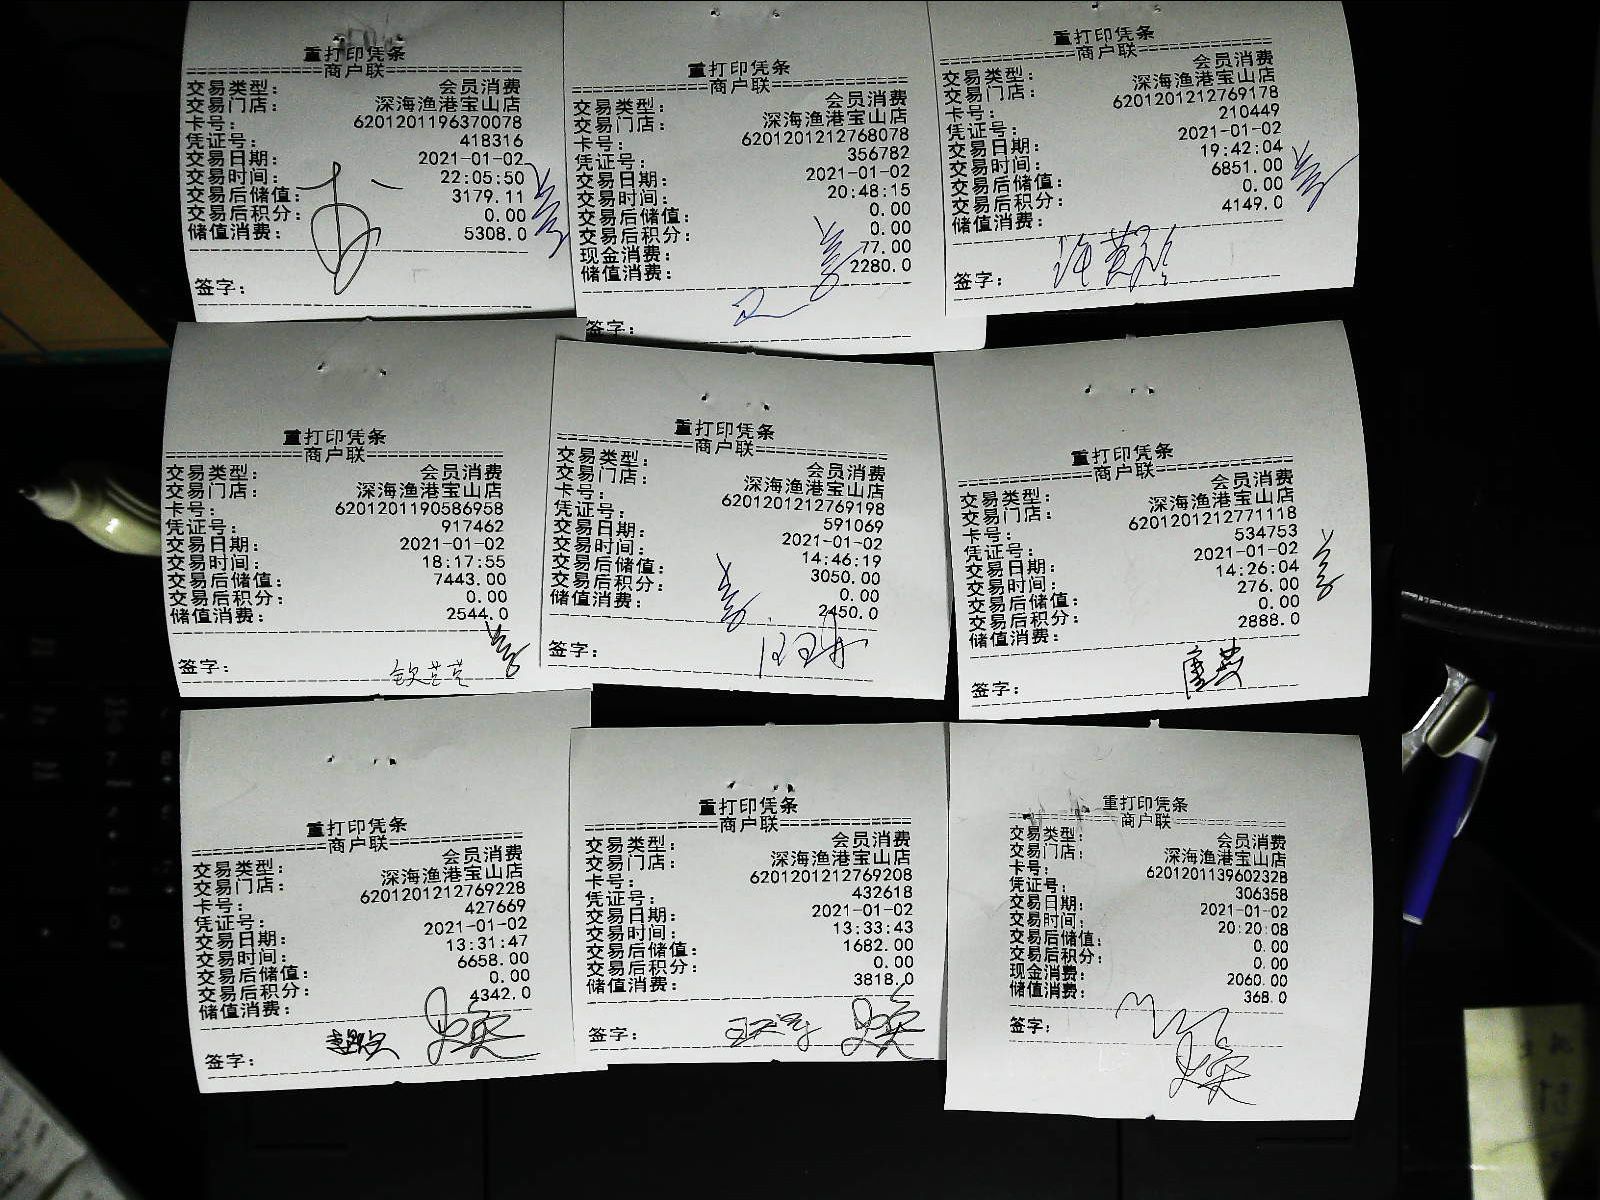 重打印凭条
==============商户联==============
交易类型: 会员消费
交易门店: 深海渔港宝山店
卡号: 6201201196370078
凭证号: 418316
交易日期: 2021-01-02
交易时间: 22:05:50
交易后储值: 3179.11
交易后积分: 0.00
储值消费: 5308.0
签字:
重打印凭条
==============商户联==============
交易类型: 会员消费
交易门店: 深海渔港宝山店
卡号: 6201201212768078
凭证号: 356782
交易日期: 2021-01-02
交易时间: 20:48:15
交易后储值: 0.00
交易后积分: 0.00
现金消费: 77.00
储值消费: 2280.0
签字:
重打印凭条
==============商户联==============
交易类型: 会员消费
交易门店: 深海渔港宝山店
卡号: 6201201212769178
凭证号: 210449
交易日期: 2021-01-02
交易时间: 19:42:04
交易后储值: 6851.00
交易后积分: 0.00
储值消费: 4149.0
签字:
重打印凭条
==============商户联==============
交易类型: 会员消费
交易门店: 深海渔港宝山店
卡号: 6201201190586958
凭证号: 917462
交易日期: 2021-01-02
交易时间: 18:17:55
交易后储值: 7443.00
交易后积分: 0.00
储值消费: 2544.0
签字:
重打印凭条
==============商户联==============
交易类型: 会员消费
交易门店: 深海渔港宝山店
卡号: 6201201212769198
凭证号: 591069
交易日期: 2021-01-02
交易时间: 14:46:19
交易后储值: 3050.00
交易后积分: 0.00
储值消费: 2450.0
签字:
重打印凭条
==============商户联==============
交易类型: 会员消费
交易门店: 深海渔港宝山店
卡号: 6201201212771118
凭证号: 534753
交易日期: 2021-01-02
交易时间: 14:26:04
交易后储值: 276.00
交易后积分: 0.00
储值消费: 2888.0
签字: 唐燕
重打印凭条
==============商户联==============
交易类型: 会员消费
交易门店: 深海渔港宝山店
卡号: 6201201212769228
凭证号: 427669
交易日期: 2021-01-02
交易时间: 13:31:47
交易后储值: 6658.00
交易后积分: 0.00
储值消费: 4342.0
签字:
重打印凭条
==============商户联==============
交易类型: 会员消费
交易门店: 深海渔港宝山店
卡号: 6201201212769208
凭证号: 432618
交易日期: 2021-01-02
交易时间: 13:33:43
交易后储值: 1682.00
交易后积分: 0.00
储值消费: 3818.0
签字:
重打印凭条
==============商户联==============
交易类型: 会员消费
交易门店: 深海渔港宝山店
卡号: 6201201139602328
凭证号: 306358
交易日期: 2021-01-02
交易时间: 20:20:08
交易后储值: 0.00
交易后积分: 0.00
现金消费: 2060.00
储值消费: 368.0
签字: